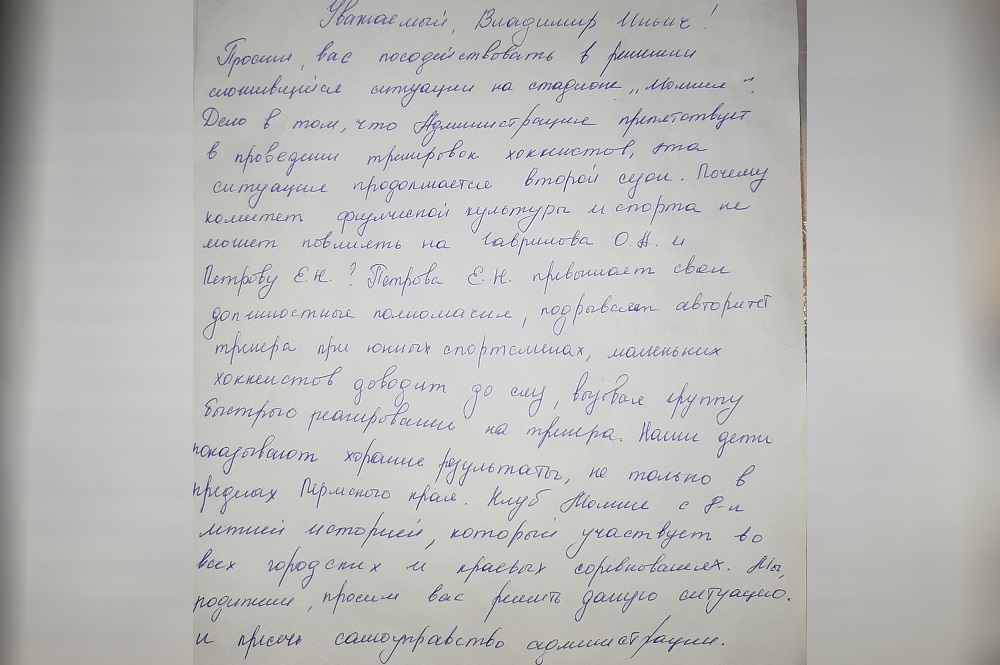 Уважаемый, Владимир Ильич!
Просим, вас посодействовать в решении
сложившейся ситуации на стадионе „Молния".
Дело в том, что Администрация препятствует
в проведении тренировок хоккеистов, эта
ситуация продолжается второй сезон. Почему
комитет физической культуры и спорта не
может повлиять на Гаврилова О.А. и
Петрову Е.Н.? Петрова Е.Н. превышает свои
должностные полномочия, подрывает авторитет
тренера при юных спортсменах, маленьких
хоккеистов доводит до слез, вызывая группу
быстрого реагирования на тренера. Наши дети
показывают хорошие результаты, не только в
пределах Пермского края. Клуб Молния с 8-и
летней историей, который участвует во
всех городских и краевых соревнованиях. Мы,
родители, просим вас решить данную ситуацию.
и пресечь самоуправство администрации.